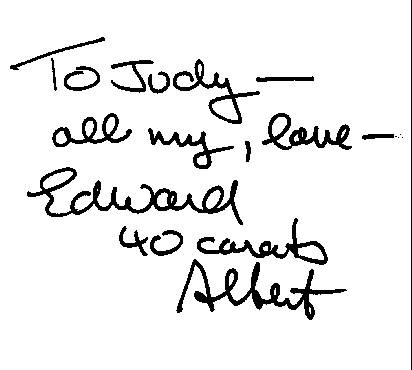 To Judy —
all my, love —
Edward
40 carats
Albert